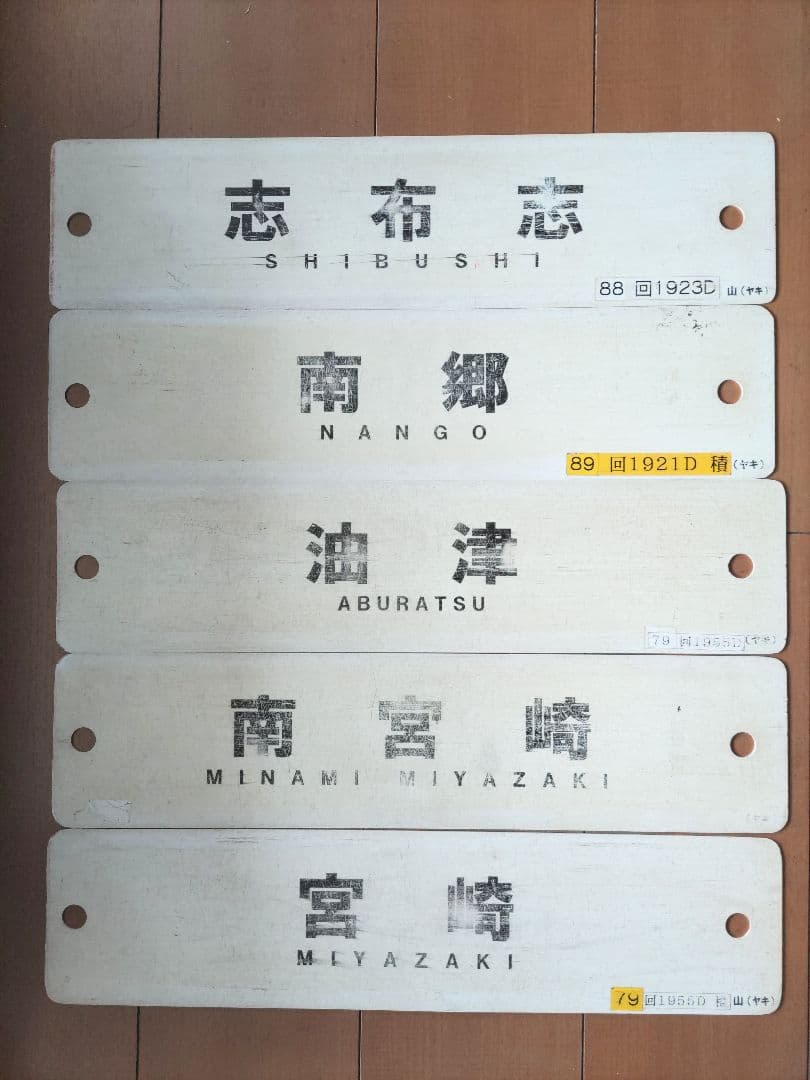 志布志
SHIBUSHI
88 回1923D 山(ヤキ)
南郷
NANGO
89 回1921D 積(ヤキ)
油津
ABURATSU
79 回1955D(ヤキ)
南宮崎
MINAMI MIYAZAKI
宮崎
MIYAZAKI
79 回1955D 山(ヤキ)